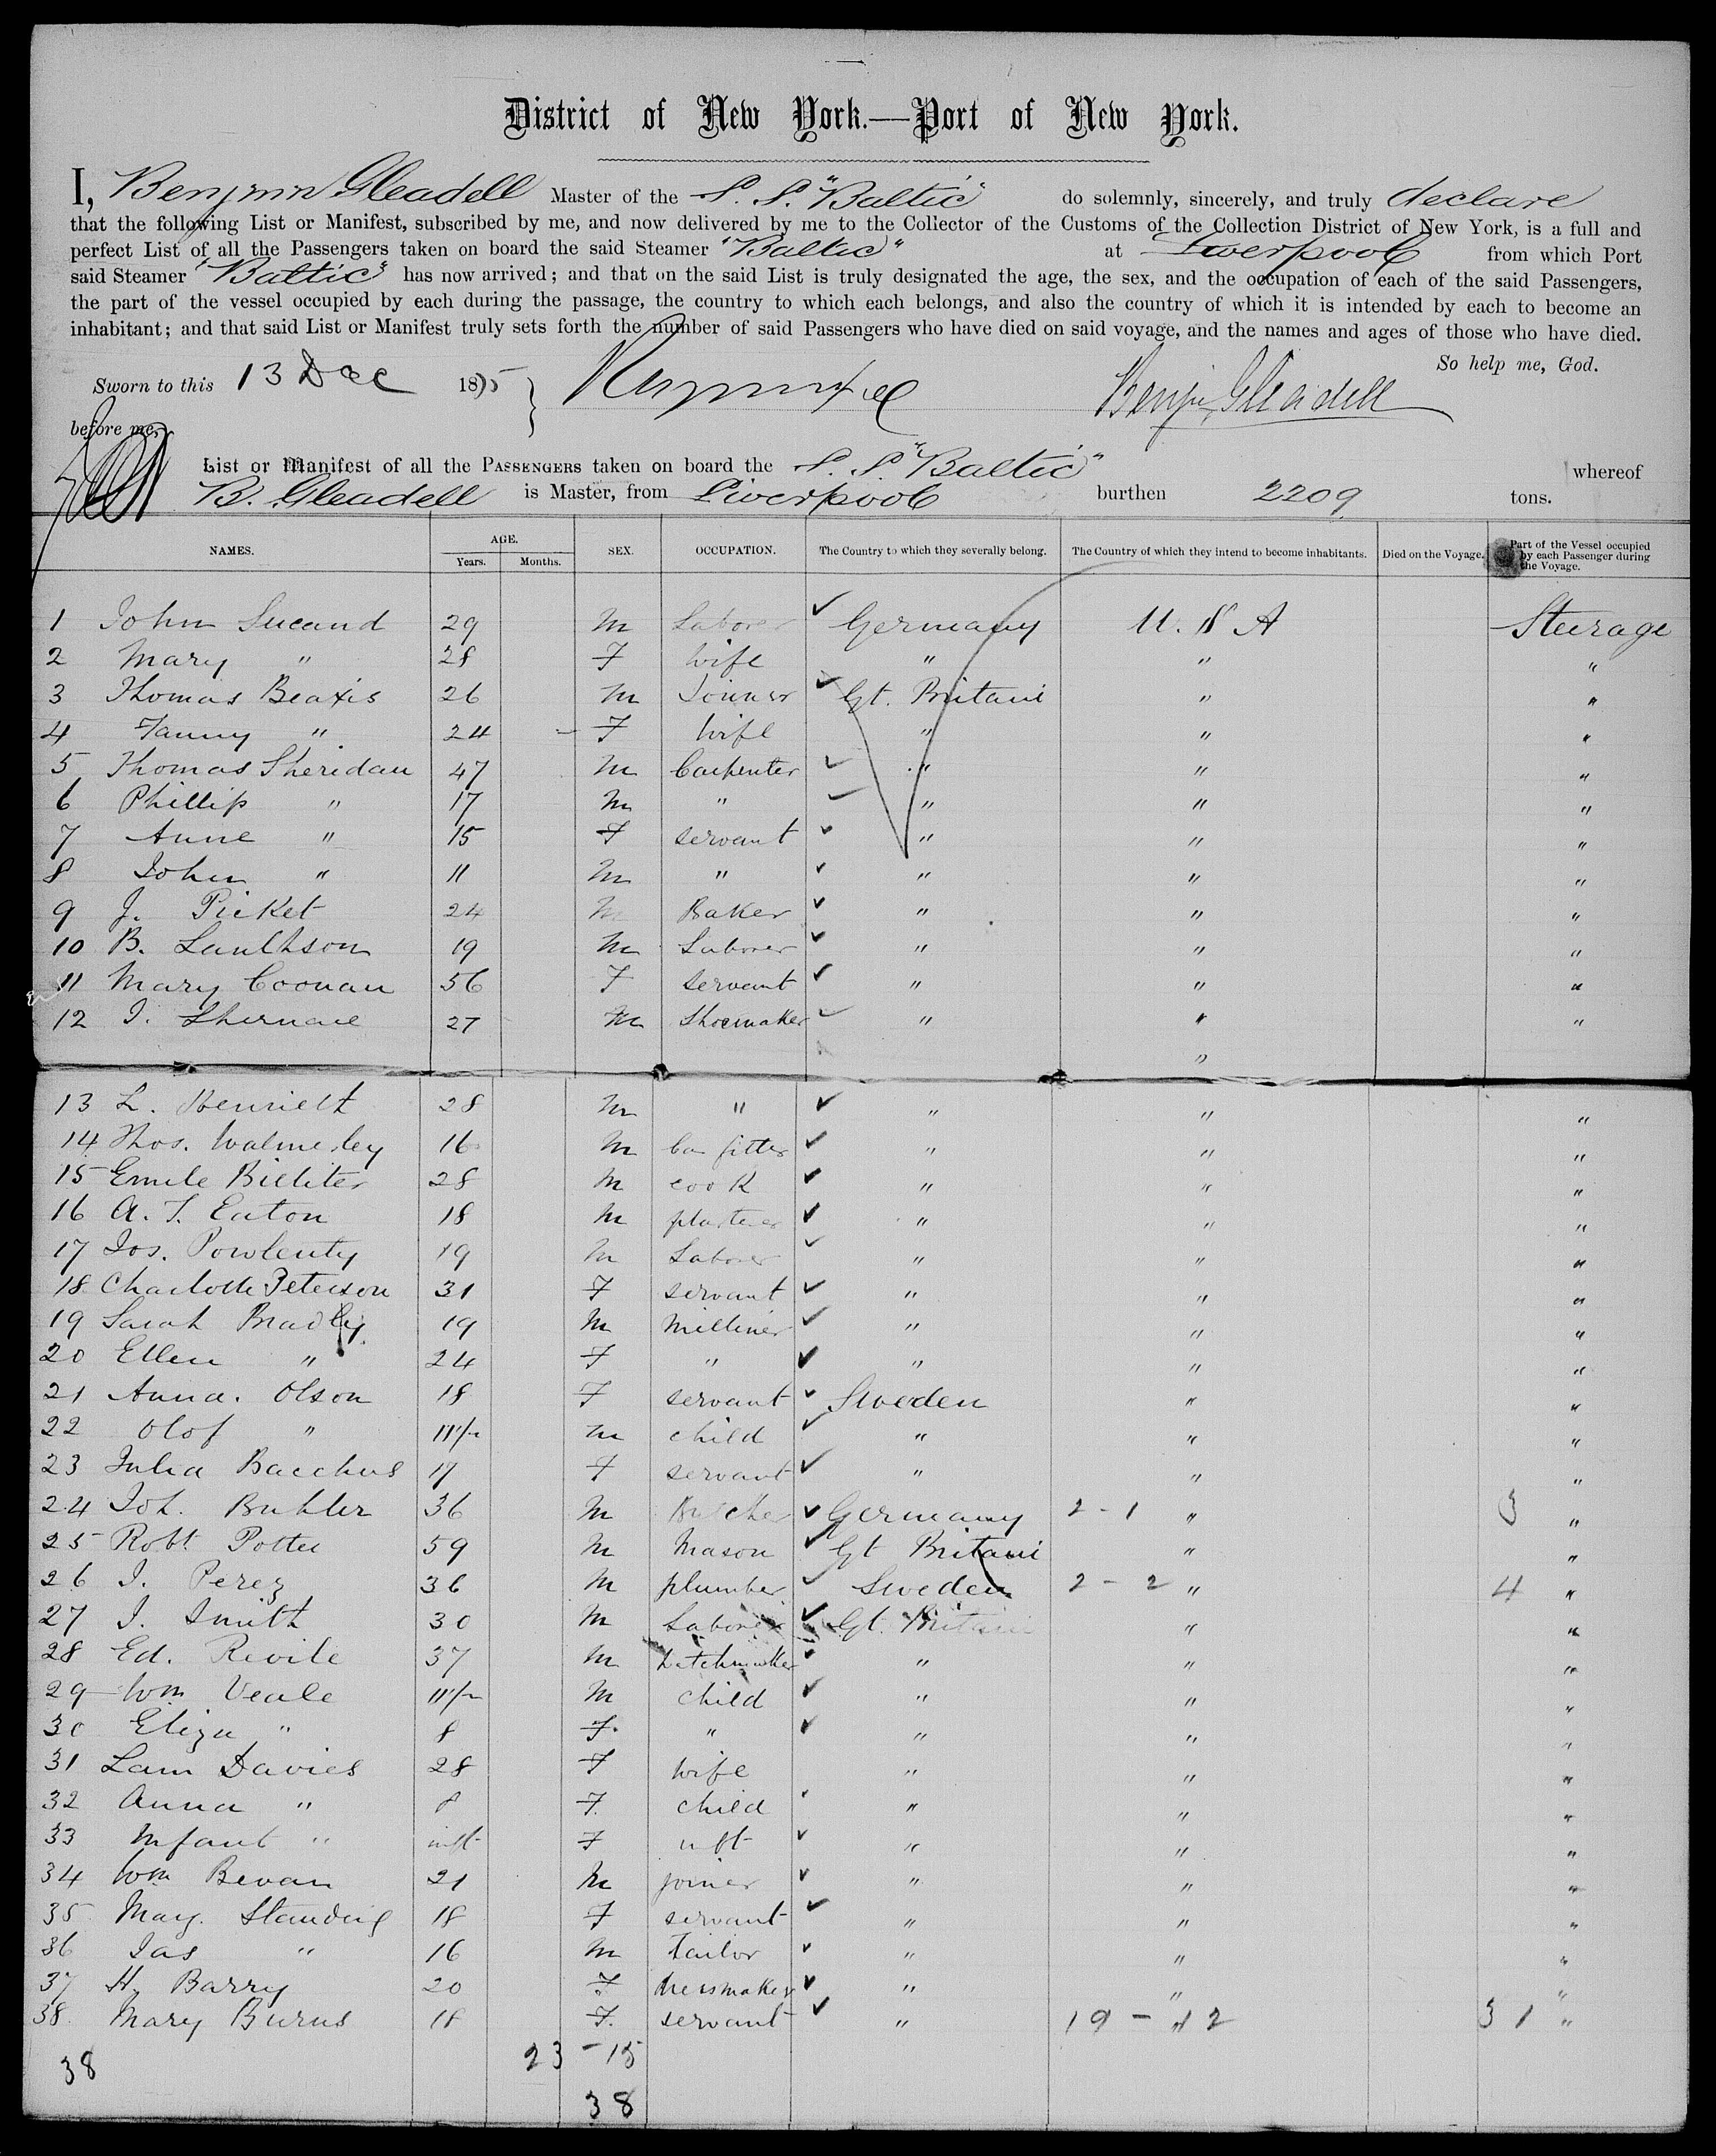 District of New York.—Port of New York.
I, Benjmin Gleadell Master of the S. S. "Baltic" do solemnly, sincerely, and truly declare
that the following List or Manifest, subscribed by me, and now delivered by me to the Collector of the Customs of the Collection District of New York, is a full and
perfect List of all the Passengers taken on board the said Steamer "Baltic" at Liverpool from which Port
said Steamer "Baltic" has now arrived; and that on the said List is truly designated the age, the sex, and the occupation of each of the said Passengers,
the part of the vessel occupied by each during the passage, the country to which each belongs, and also the country of which it is intended by each to become an
inhabitant; and that said List or Manifest truly sets forth the number of said Passengers who have died on said voyage, and the names and ages of those who have died.
So help me, God.
Sworn to this 13 Dec 1875 Benj. Gleadell
before me,
List or Manifest of all the PASSENGERS taken on board the S. S. "Baltic" whereof
B. Gleadell is Master, from Liverpool burthen 2209 tons.
NAMES. AGE. Years. Months. SEX. OCCUPATION. The Country to which they severally belong. The Country of which they intend to become inhabitants. Died on the Voyage. Part of the Vessel occupied by each Passenger during the Voyage.
1 John Sucand 29 M Laborer ✓ Germany U. S A Steerage
2 Mary " 28 F wife " " "
3 Thomas Beaxis 26 M Joiner ✓ Gt. Britani " "
4 Fanny " 24 F wife " " "
5 Thomas Sheridan 47 M Carpenter ✓ " " "
6 Phillip " 17 M " ✓ " " "
7 Anne " 15 F servant ✓ " " "
8 John " 11 M " ✓ " " "
9 J. Picket 24 M Baker ✓ " " "
10 B. 19 M Laborer ✓ " " "
11 Mary Coonan 56 F servant ✓ " " "
12 J. 27 M Shoemaker ✓ " " "
"
13 L. 28 M " ✓ " " "
14 Thos. Walmesley 16 M fitter ✓ " " "
15 Emile Billiter 28 M cook ✓ " " "
16 A. T. Eaton 18 M ✓ " " "
17 Jos. Powlenty 19 M Laborer ✓ " " "
18 Charlotte Peterson 31 F servant ✓ " " "
19 Sarah Bradley 19 M Milliner ✓ " " "
20 Ellen " 24 F " ✓ " " "
21 Anna. Olson 18 F servant ✓ Sweden " "
22 Olof " M child ✓ " " "
23 Julia Bacchus 17 F servant ✓ " " "
24 Joh. Buhler 36 M Butcher ✓ Germany 2 - 1 " 3 "
25 Robt Potter 59 M Mason ✓ Gt Britani " "
26 J. Perez 36 M plumber ✓ Sweden 2 - 2 " 4 "
27 J. Smith 30 M Laborer ✓ Gt. Britani " "
28 Ed. Revile 37 M ✓ " " "
29 Wm Veale M child ✓ " " "
30 Eliza " 8 F. " ✓ " " "
31 Davies 28 F wife " " "
32 Anna " 8 F. child " " "
33 Infant " inft F inft ✓ " " "
34 Wm Bevan 21 M joiner ✓ " " "
35 Mary. Standing 18 F servant ✓ " " "
36 Jas " 16 M tailor ✓ " " "
37 H. Barry 20 F dressmaker ✓ " " "
38 Mary Burns 18 F. servant ✓ " 19 - 12 " 31 "
38 23 - 15
38